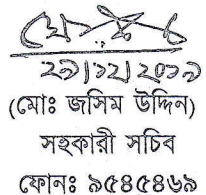 ২৯/১২/২০১৯
(মোঃ জসিম উদ্দিন)
সহকারী সচিব
ফোনঃ ৯৫৪৫৪৬৯